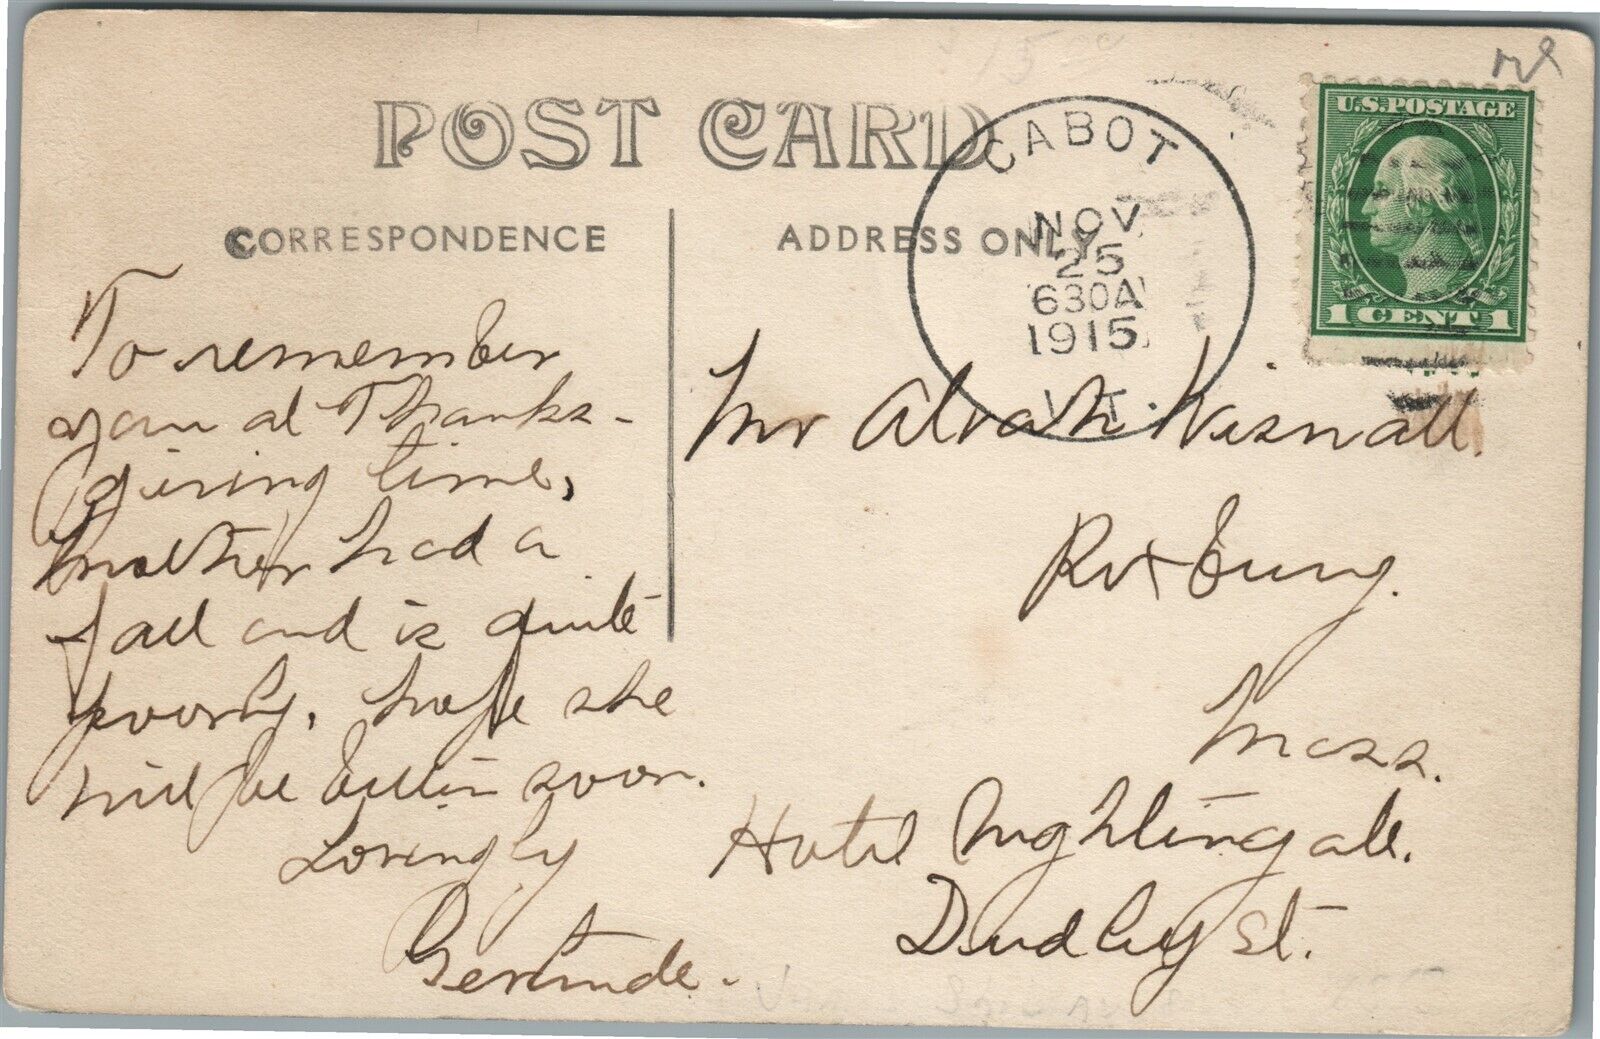 POST CARD
CORRESPONDENCE
ADDRESS ONLY
CABOT
NOV
25
630A
1915
VT.
U.S. POSTAGE
1 CENT 1
To remember
you at Thanks-
giving time,
Mother had a
fall and is quite
poorly, hope she
will be better soon.
Lovingly
Gertrude.
Mr Alvah
Roxbury.
Mass.
Hotel Nightingale.
Dudley St.